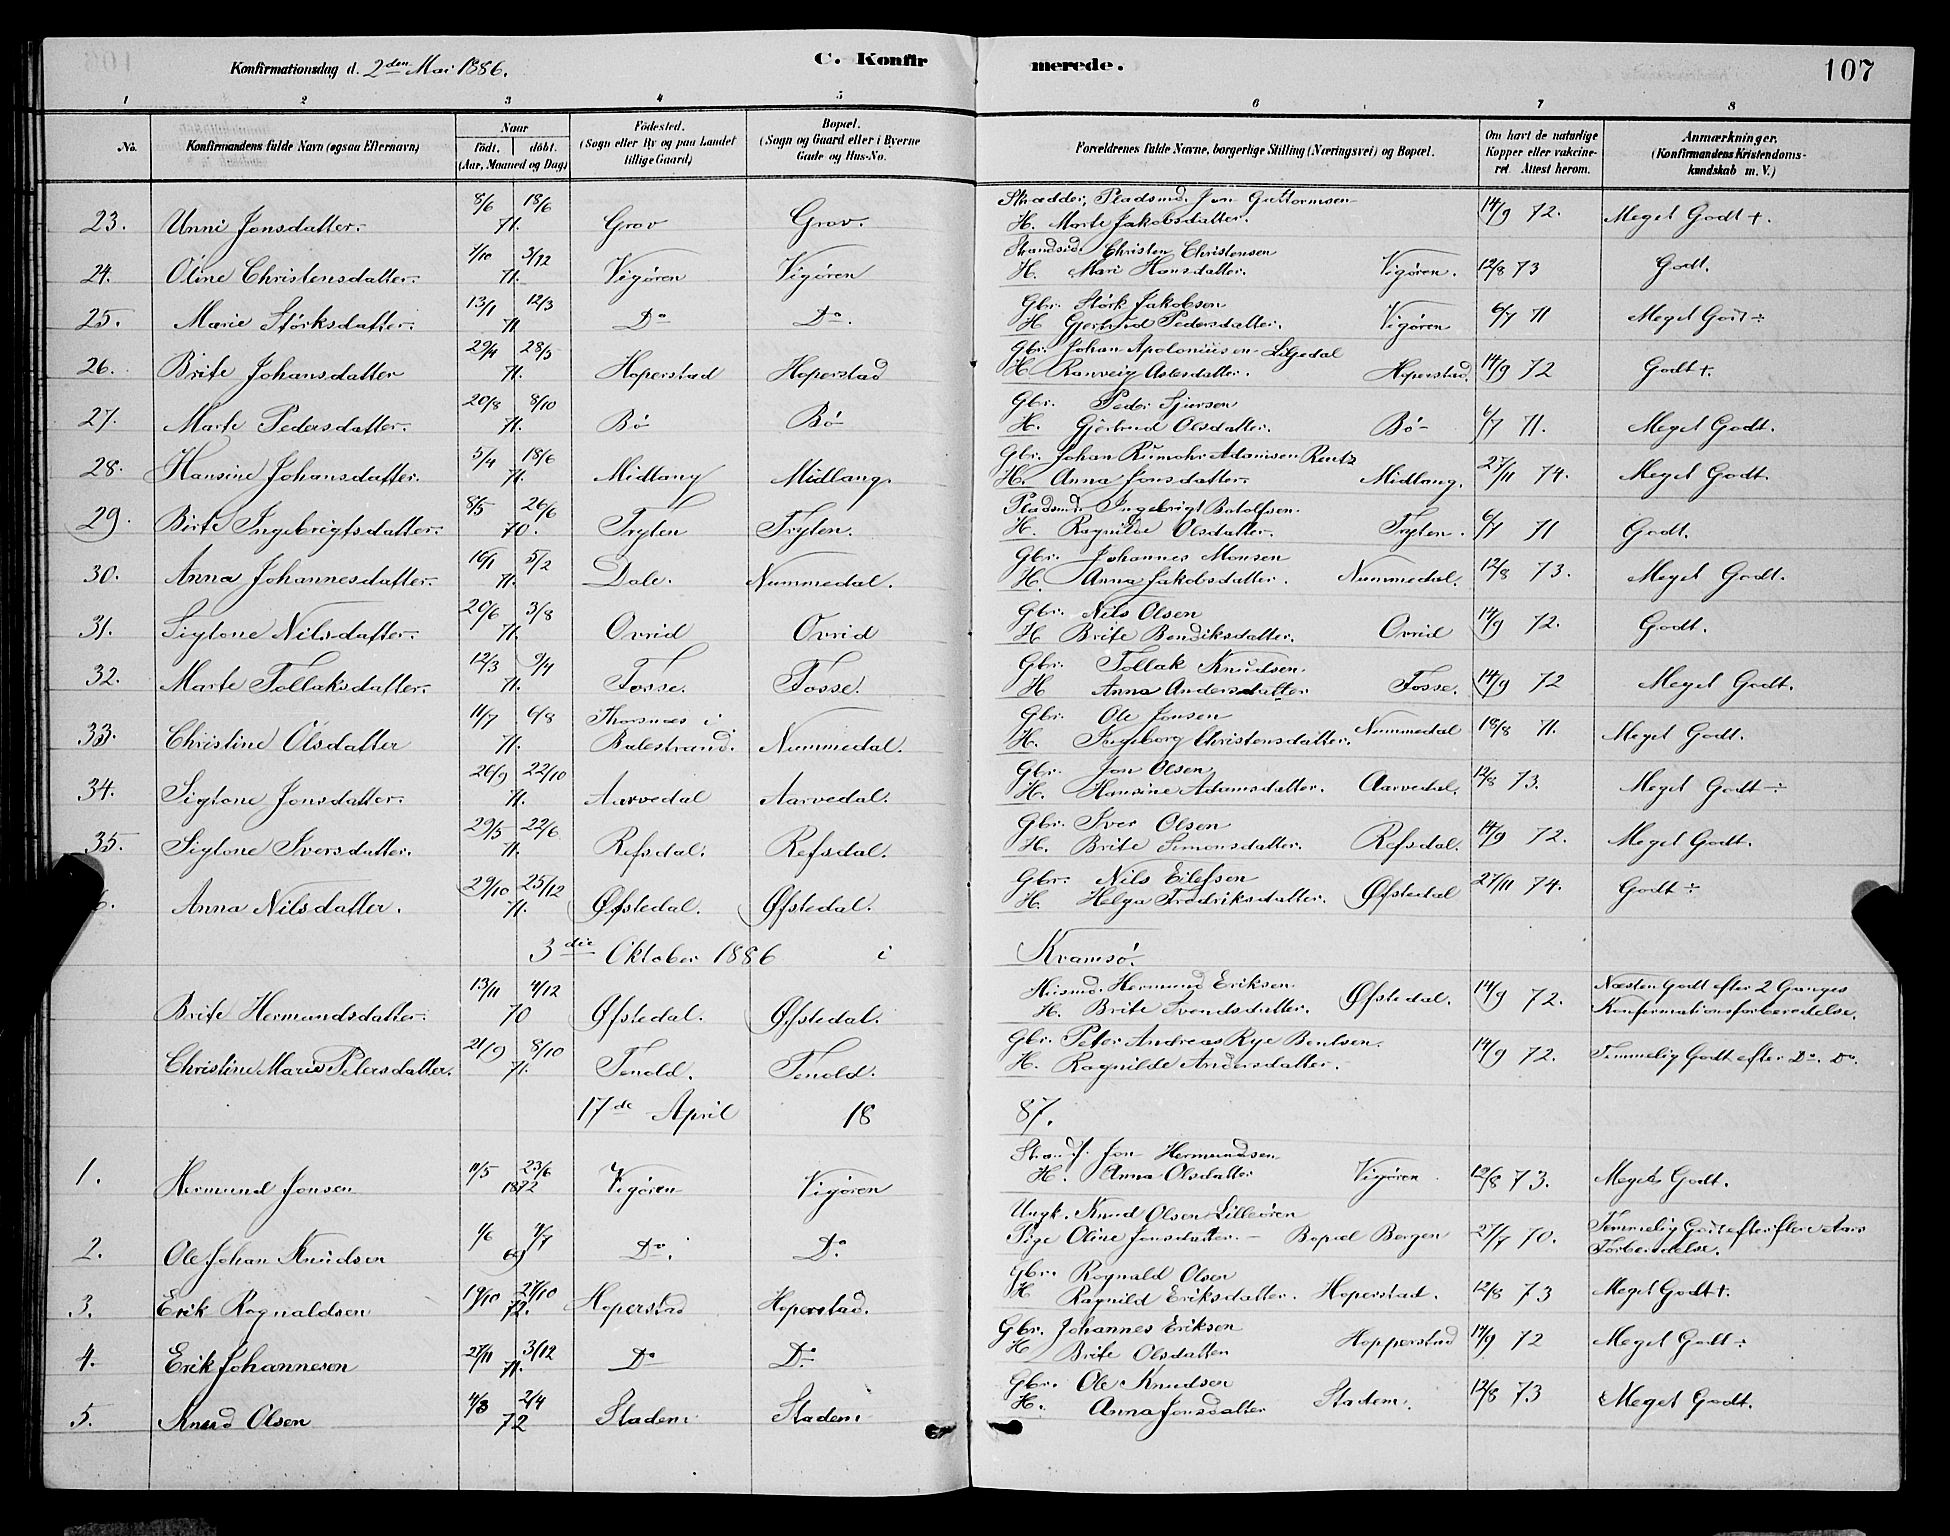 Konfirmationsdag d. 2den Mai 1886.
C. Konfirmerede.
107
1 2 3 4 5 6 7 8
No. Konfirmandens fulde Navn (ogsaa Efternavn) Naar født. døbt. (Aar, Maaned og Dag) Fødested. (Sogn eller By og paa Landet tillige Gaard) Bopæl. (Sogn og Gaard eller i Byerne Gade og Hus-No. Forældrenes fulde Navne, borgerlige Stilling (Næringsvei) og Bopæl. Om havt de naturlige Kopper eller vakcineret Attest herom. Anmærkninger. (Konfirmandens Kristendomskundskab m. V.)
23. Unni Jonsdatter. 8/6 18/6 71. Grov Grov. Skrædder, Pladsmd. Jon Guttormsen
H. Marte Jakobsdatter. 14/9 72. Meget Godt +.
24. Oline Christensdatter. 1/10 3/12 71. Vigøren Vigøren Strandsid. Christen Christensen
H. Mari Hansdatter. Vigøren. 12/8 73 Godt.
25. Marie Størksdatter. 13/1 12/3 71 Do Do. Gbr. Størk Jakobsen
H Gjertrud Pedersdatter. Vigøren 6/7 71 Meget Godt ÷
26. Brite Johansdatter 29/4 28/5 71. Hoperstad Hoperstad Gbr. Johan Apoloniusen Liljedal
H. Ranveig Aslesdatter. Hoperstad. 14/9 72 Godt +.
27. Marte Pedersdatter. 20/8 8/10 71. Bø Bø Gbr. Peder Sjursen
H. Gjertrud Olsdatter. Bø 6/7 71. Meget Godt.
28. Hansine Johansdatter. 5/4 18/6 71. Midlang Midlang. Gbr. Johan Rumohr Adamsen Rentz
H. Anna Jonsdatter. Midlang. 27/11 74. Meget Godt.
29. Birte Ingebrigtsdatter. 8/5 26/6 70. Tryten Tryten. Pladsmd. Ingebrigt Botolfsen.
H. Ragnilde Olsdatter. Tryten. 6/7 71 Godt.
30. Anna Johannesdatter. 16/1 5/2 71. Dale. Nummedal. Gbr. Johannes Monsen
H. Anna Jakobsdatter. Nummedal. 12/8 73. Meget Godt.
31. Siglone Nilsdatter. 20/6 3/8 71. Ovrid Ovrid Gbr. Nils Olsen
H. Brite Bendiksdatter. Ovrid 14/9 72. Godt.
32. Marte Tollaksdatter. 12/3 9/4 71. Fosse. Fosse. Gbr. Tollak Knudsen.
H Anna Andersdatter Fosse. 14/9 72 Meget Godt.
33. Christine Olsdatter 11/7 6/8 71. Thorsnæs i Balestrand. Nummedal. Gbr. Ole Jonsen
H. Ingeborg Christensdatter. Nummedal 18/8 71. Meget Godt.
34. Siglone Jonsdatter. 26/9 22/10 71. Aarvedal Aarvedal. Gbr. Jon Olsen
H. Hansine Adamsdatter. Aarvedal. 12/8 73. Meget Godt ÷
35. Siglone Iversdatter. 29/5 22/6 71. Refsdal. Refsdal. Gbr. Iver Olsen
H. Brite Simonsdatter. Refsdal. 14/9 72. Meget Godt.
6. Anna Nilsdatter. 29/10 25/12 71. Øfstedal. Øfstedal. Gbr. Nils Eilefsen
H. Helga Fredriksdatter. Øfstedal 27/11 74. Godt ÷
3die Oktober 1886 i Kvamsø.
Brite Hermundsdatter. 13/11 4/12 70 Øfstedal. Øfstedal. Huismd. Hermund Eriksen.
H. Brite Svendsdatter. Øfstedal. 14/9 72. Næsten Godt efter 2 Ganges Konfirmationsforberedelse.
Christine Marie Petersdatter. 21/9 8/10 71. Tenold. Tenold. Gbr. Peter Andreas Rye Bentsen.
H. Ragnilde Andersdatter. 14/9 72. Temmelig Godt efter Do. Do.
17de April 1887.
1. Hermund Jonsen 11/5 23/6 1872 Vigøren Vigøren Strands. Jon Hermundsen
H. Anna Olsdatter Vigøren 12/8 73. Meget Godt.
2. Ole Johan Knudsen 1/6 4/7 69 Do. Do. Ungk. Knud Olsen Lilleøren
Pige Oline Jonsdatter. – Bopæl Bergen 27/7 70. Temmelig Godt efter flere Aars Forberedelse.
3. Erik Rognaldsen 19/10 27/10 72. Hoperstad Hoperstad. Gbr. Rognald Olsen
H Ragnild Eriksdatter. Hoperstad. 12/8 73 Meget Godt +.
4. Erik Johannesen 27/11 3/12 71. Do Do Gbr. Johannes Eriksen
H Brite Olsdatter Hopperstad 14/9 72 Meget Godt ÷
5. Knud Olsen 4/3 2/4 72 Stadem Stadem Gbr. Ole Knudsen
H. Anna Jonsdatter Stadem. 12/8 73 Meget Godt.